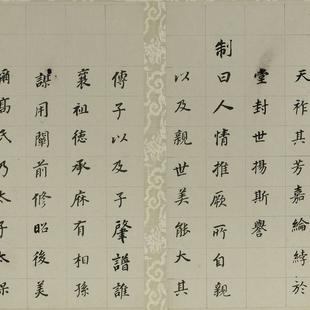 天祚其芳嘉綸綍於
堂封世揚斯譽
制曰人情推厥所自親
以及親世美能大其
傳子以及子肇譜誰
襄祖德承麻有相孫
謀用闡前修昭後美
彌高氏乃太子太保